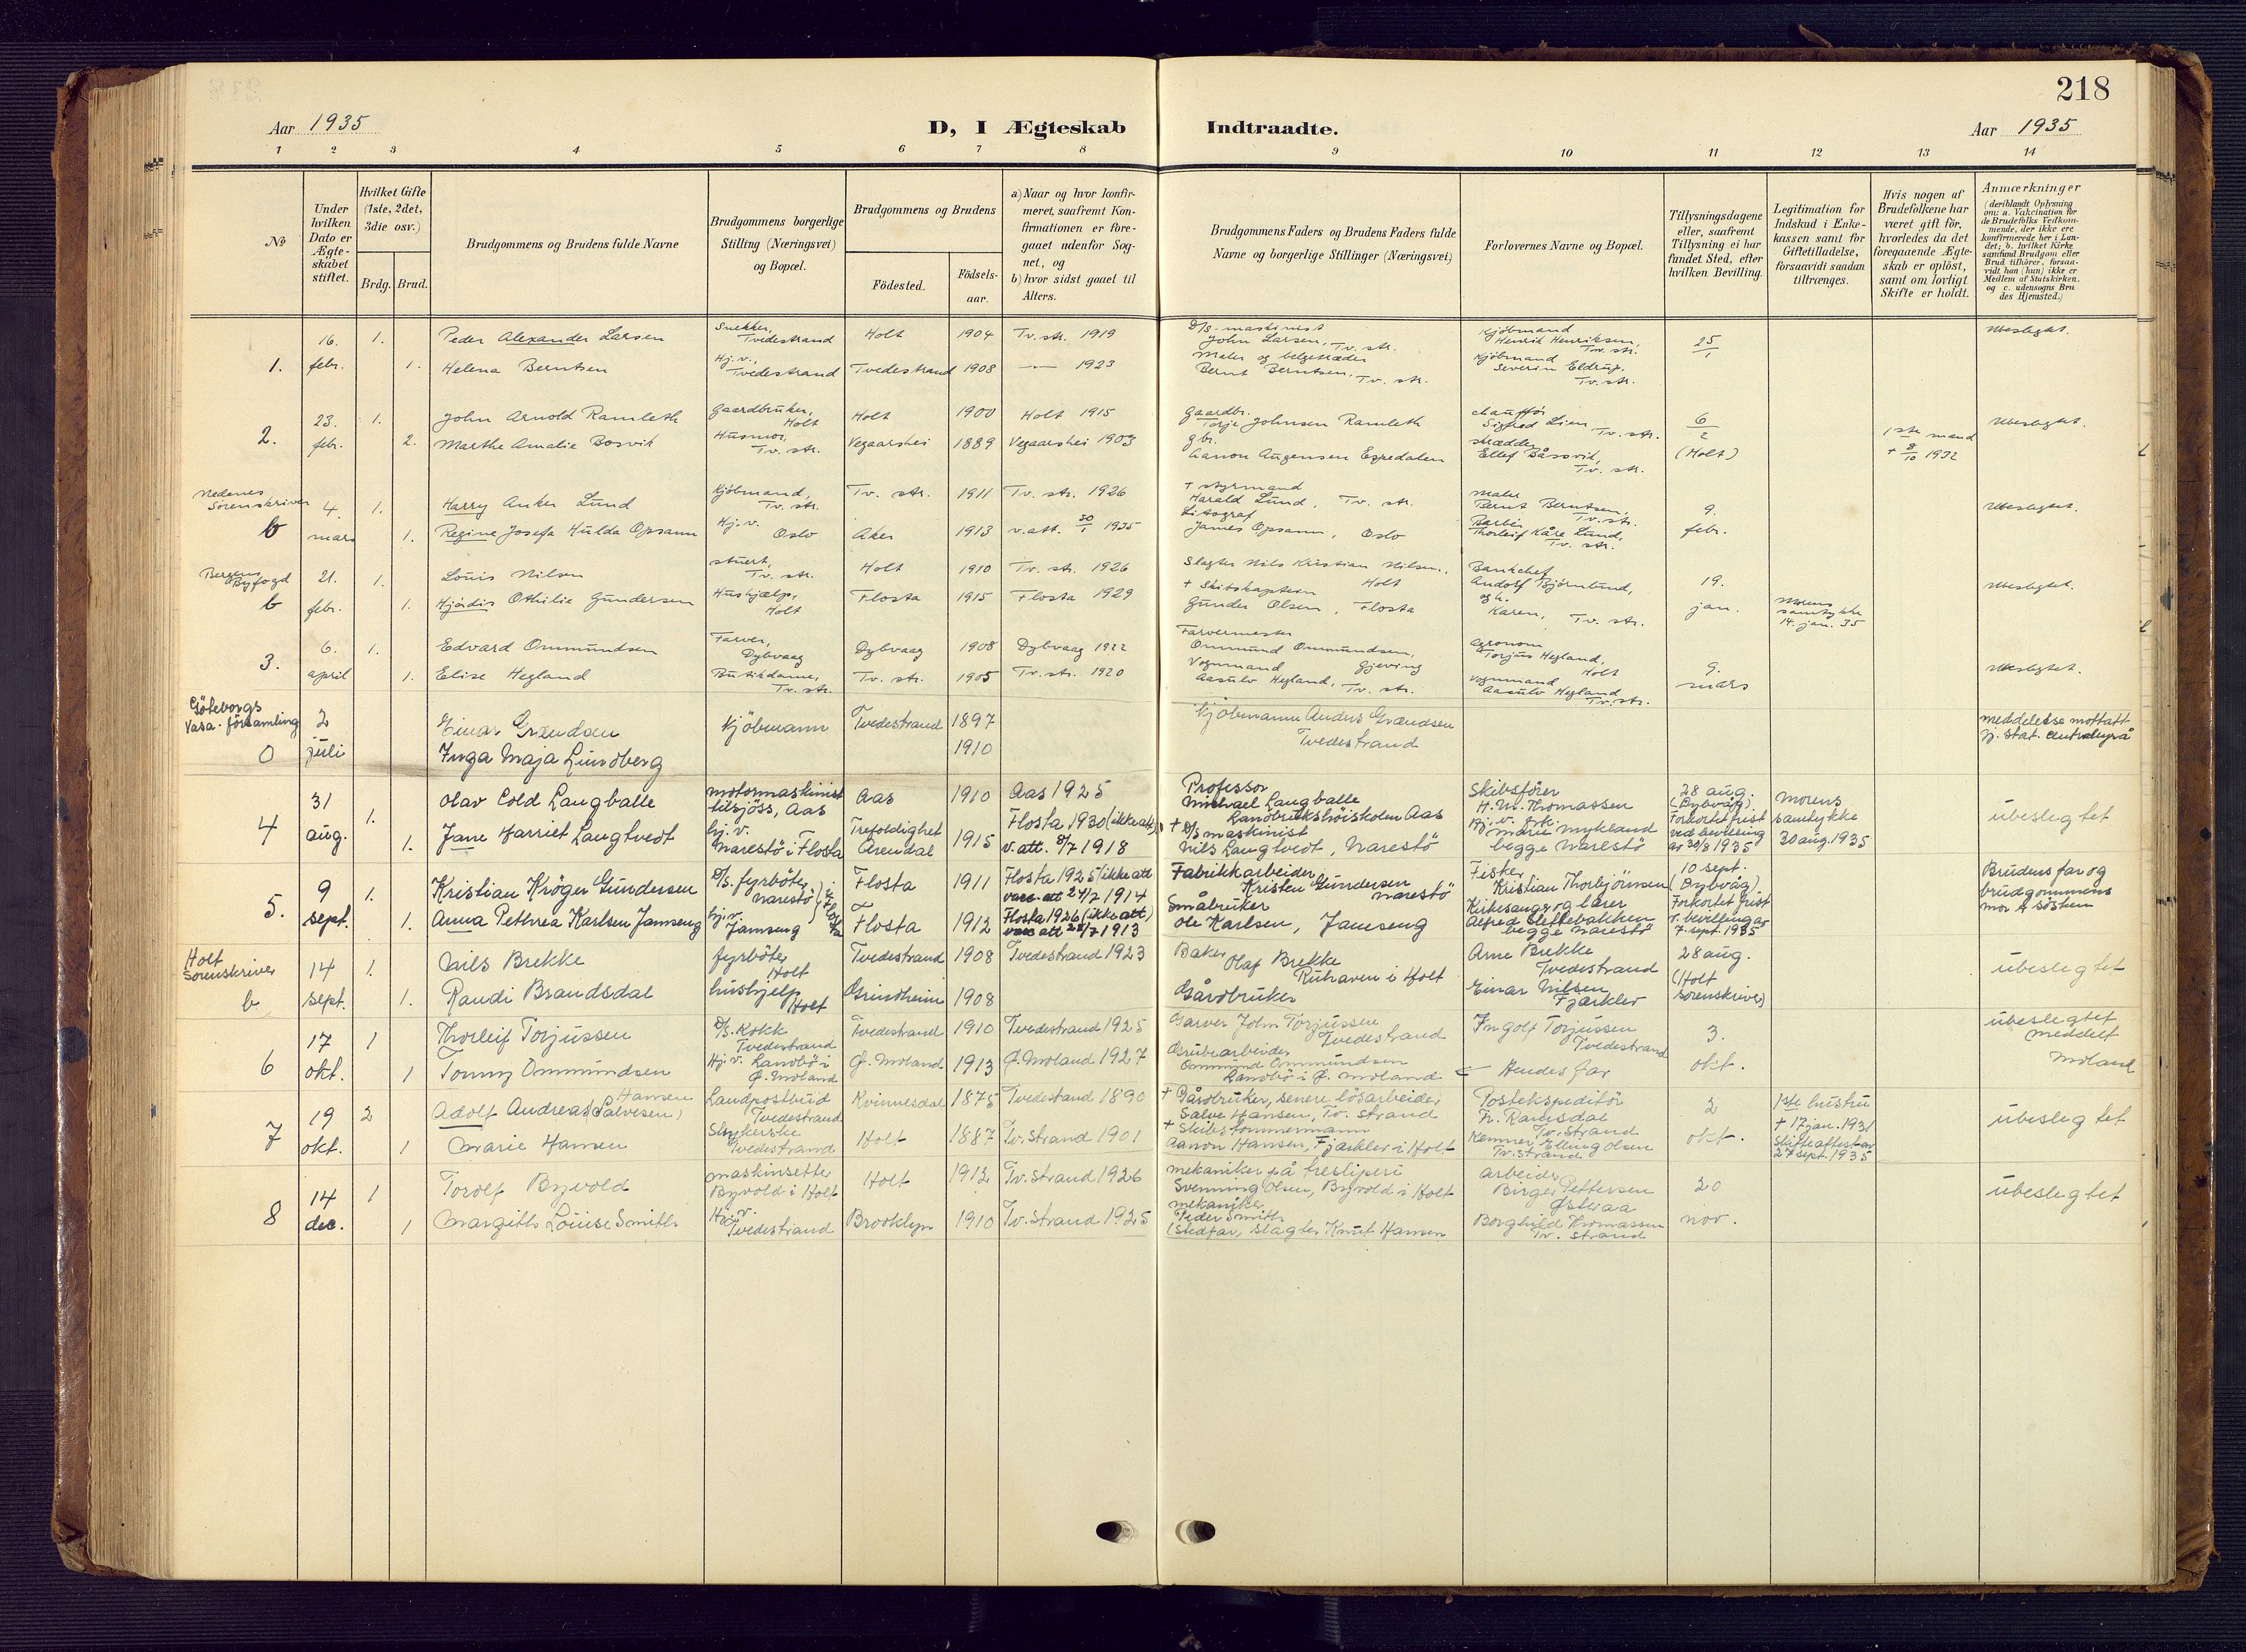 218
Aar 1935
D, I Ægteskab Indtraadte.
Aar 1935
1 2 3 4 5 6 7 8 9 10 11 12 13 14
No
Under hvilken Dato er Ægteskabet stiftet.
Hvilket Gifte (1ste, 2det, 3die osv.)
Brdg. Brud.
Brudgommens og Brudens fulde Navne
Brudgommens borgerlige Stilling (Næringsvei) og Bopæl.
Brudgommens og Brudens
Fødested.
Fødselsaar.
a) Naar og hvor konfirmeret, saafremt Konfirmationen er foregaaet udenfor Sognet, og
b) hvor sidst gaaet til Alters.
Brudgommens Faders og Brudens Faders fulde Navne og borgerlige Stillinger (Næringsvei)
Forlovernes Navne og Bopæl.
Tillysningsdagene eller, saafremt Tillysning ei har fundet Sted, efter hvilken Bevilling.
Legitimation for Indskud i Enkekassen samt for Giftetilladelse, forsaavidt saadan tiltrænges.
Hvis nogen af Brudefolkene har været gift før, hvorledes da det foregaaende Ægteskab er opløst, samt om lovligt Skifte er holdt.
Anmærkninger
(deriblandt Oplysning om: a. Vakcination for de Brudefolks Vedkommende, der ikke ere konfirmerede her i Landet; b. hvilket Kirkesamfund Brudgom eller Brud tilhører, forsaavidt han (hun) ikke er Medlem af Statskirken, og c. udensogns Brudes Hjemsted.)
1. 16. febr. 1. Peder Alexander Larsen Snekker, Tvedestrand Holt 1904 Tv. str. 1919 D/S. maskinist John Larsen, Tv. str. Kjöbmand Henrik Henriksen, Tv. str. 25/1 Ubeslegtet.
1. Helena Berntsen Hj. v., Tvedestrand Tvedestrand 1908 — 1923 Maler og Bernt Berntsen, Tv. str. Kjöbmand Severin Eldrup, Tv. str.
2. 23. febr. 1. John Arnold Ramleth Gaardbruker, Holt Holt 1900 Holt 1915 Gaardbr. Torje Johnsen Ramleth chauffør Sigfred Lien, Tv. str. 6/2 (Holt) Ubeslegtet.
2. Marthe Amalie Bosvik Husmor, Tv. str. Vegaarshei 1889 Vegaarshei 1903 gbr. Aanon Augensen Espedalen skrædder Ellef Båssvik, Tv. str. 1ste mand + 8/10 1932
Nedenes Sorenskriver b 4. mars 1. Harry Anker Lund Kjöbmand, Tv. str. Tv. str. 1911 Tv. str. 1926 + styrmand Harald Lund, Tv. str. Maler Bernt Berntsen, Tv. str. 9. febr. Ubeslegtet.
1. Regine Josefa Hulda Opsann Hj. v. Oslo Aker 1913 v. att. 30/1 1935 Litograf James Opsann, Oslo Barber Thorleif Kåre Lund, Tv. str.
Bergens Byfogd b 21. febr. 1. Louis Nilsen stuert, Tv. str. Holt 1910 Tv. str. 1926 Slagter Nils Kristian Nilsen, Holt Bankchef Andolf Bjørnlund, 19. jan. Ubeslegtet.
1. Hjördis Othilie Gundersen Hushjælp, Holt Flosta 1915 Flosta 1929 + Skibskaptein Gunder Olsen, Flosta og fr. Karen, Tv. str. Morens samtykke 14. jan. 35
3. 6. april 1. Edvard Ommundsen Farver, Dybvaag Dybvaag 1908 Dybvaag 1922 Farvermester Ommund Ommundsen, Gjeving Agronom Torjus Hegland, Holt 9. mars Ubeslegtet.
1. Elise Hegland Butikdame, Tv. str. Tv. str. 1905 Tv. str. 1920 Vognmand Aasulv Hegland, Tv. str. Vognmand Aasulv Hegland Tv. str.
Göteborgs Vasa-församling 0 2 juli Einar Grændsen Kjöbmann Tvedestrand 1897 Kjöbmann Anders Grændsen Tvedestrand meddelelse mottatt gj. stat. centralbyrå
Inga Maja Lundberg 1910
4 31 aug. 1. Olav Cold Langballe motormaskinist tilsjöss, Aas Aas 1910 Aas 1925 Professor Michael Langballe Landbrukshöiskolen Aas Skibsförer H. M. Thomassen 28 aug. (Dybvåg) Forkortet frist ved bevilling av 30/8 1935 Morens samtykke 30 aug. 1935 Ubeslegtet
1. Jane Harriet Langtvedt hj. v. Narestö i Flosta Trefoldighet Arendal 1915 Flosta 1930 (ikke att) v. att. 8/7 1918 + D/S maskinist Nils Langtvedt, Narestö Hj. v. frk. Marie Mykland begge Narestö
5. 9 sept. 1. Kristian Kröger Gundersen D/s. fyrböter Narestö i Flosta Flosta 1911 Flosta 1925 (ikke att vacc. att 24/7 1914 Fabrikkarbeider Kristen Gundersen Narestö Fisker Kristian Thorbjörnsen 10 sept. (Dybvåg) Forkortet frist v. bevilling av 7. sept. 1935 Brudens far og brudgommens mor er söskn
1. Anna Pethrea Karlsen Jamseng hj. v. Jamseng Flosta 1912 Flosta 1926 (ikke att) vacc att 28/7 1913 Småbruker Ole Karlsen, Jamseng Kirkesanger og lærer Alfred Slettebakken begge Narestö
Holt Sorenskriver b. 14 sept. 1. Nils Brekke fyrböter Holt Tvedestrand 1908 Tvedestrand 1923 Baker Olaf Brekke Ruhaven i Holt Arne Brekke Tvedestrand 28 aug. (Holt Sorenskriver) Ubeslegtet
1. Randi Brandsdal hushjelp Holt Grindheim 1908 Gårdbruker Einar Nilsen Fjærkleiv
6 17 okt. 1 Thorleif Torjussen D/s. Kokk Tvedestrand Tvedestrand 1910 Tvedestrand 1925 Garver John Torjussen Tvedestrand Ingolf Torjussen Tvedestrand 3. okt. Ubeslegtet meddelt Moland
1 Tonny Ommundsen Hj. v. Landbö i Ø. Moland Ø. Moland 1913 Ø. Moland 1927 Grubearbeider Ommund Ommundsen Landbö i Ø. Moland Hendes far
7 19 okt. 2 Adolf Andreas (Salvesen) Hansen Landpostbud Tvedestrand Kvinnesdal 1875 Tvedestrand 1890 + Gårdbruker, senere lösarbeider Salve Hansen, Tv. strand Postekspeditör Fr. Ramsdal Tv. Strand 2 okt. 1ste hustru + 17 jan. 1931 Skifteattest av 27 sept. 1935 Ubeslegtet
1 Marie Hansen Strykerske Tvedestrand Holt 1887 Tv. Strand 1901 + Skibstömmermann Aanon Hansen, Fjærkleiv i Holt Kemner Elling Olsen Tv. strand
8 14 dec. 1 Torolf Byvold maskinsetter Byvold i Holt Holt 1912 Tv. Strand 1926 mekaniker på tresliperi Svenning Olsen, Byvold i Holt arbeider Birger Pettersen Østeraa 20 nov. Ubeslegtet
1 Margith Louise Smith Hj. v. Tvedestrand Brooklyn 1910 Tv. Strand 1925 mekaniker Peder Smith (Stedfar, slagter Knut Hansen Borghild Thomassen Tv. strand